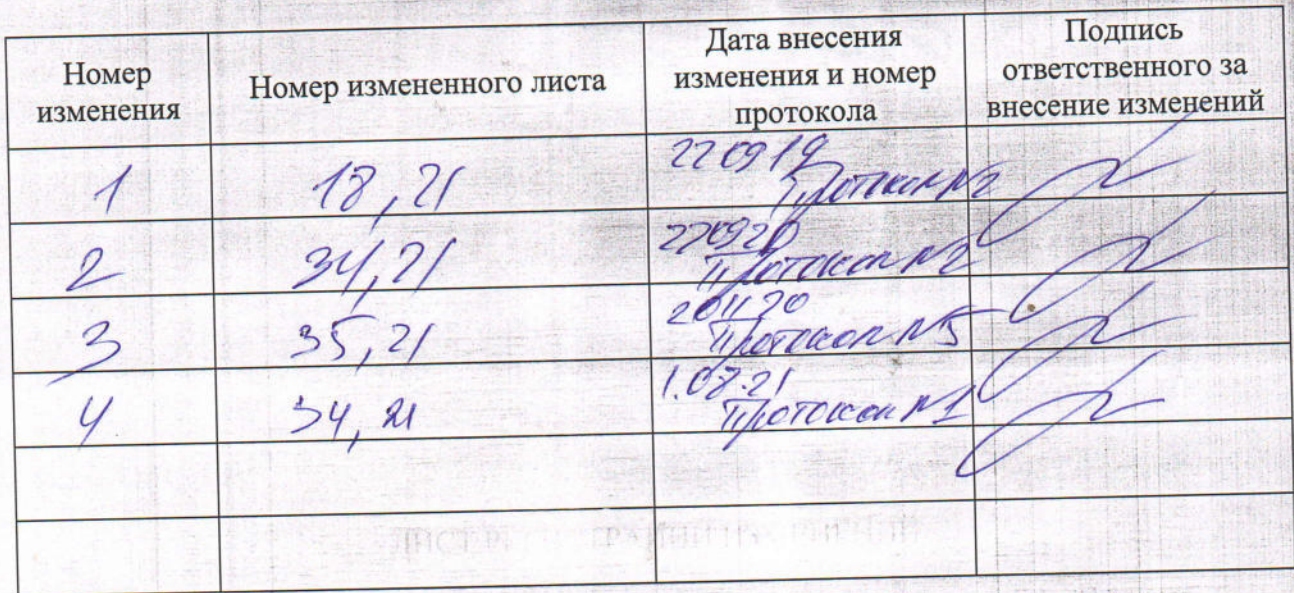 Номер изменения
Номер измененного листа
Дата внесения изменения и номер протокола
Подпись ответственного за внесение изменений
1
18, 21
22 09 19
Протокол №2
2
34, 21
220920
Протокол №2
3
35, 21
20 11 20
Протокол №5
4
34, 21
Протокол №1